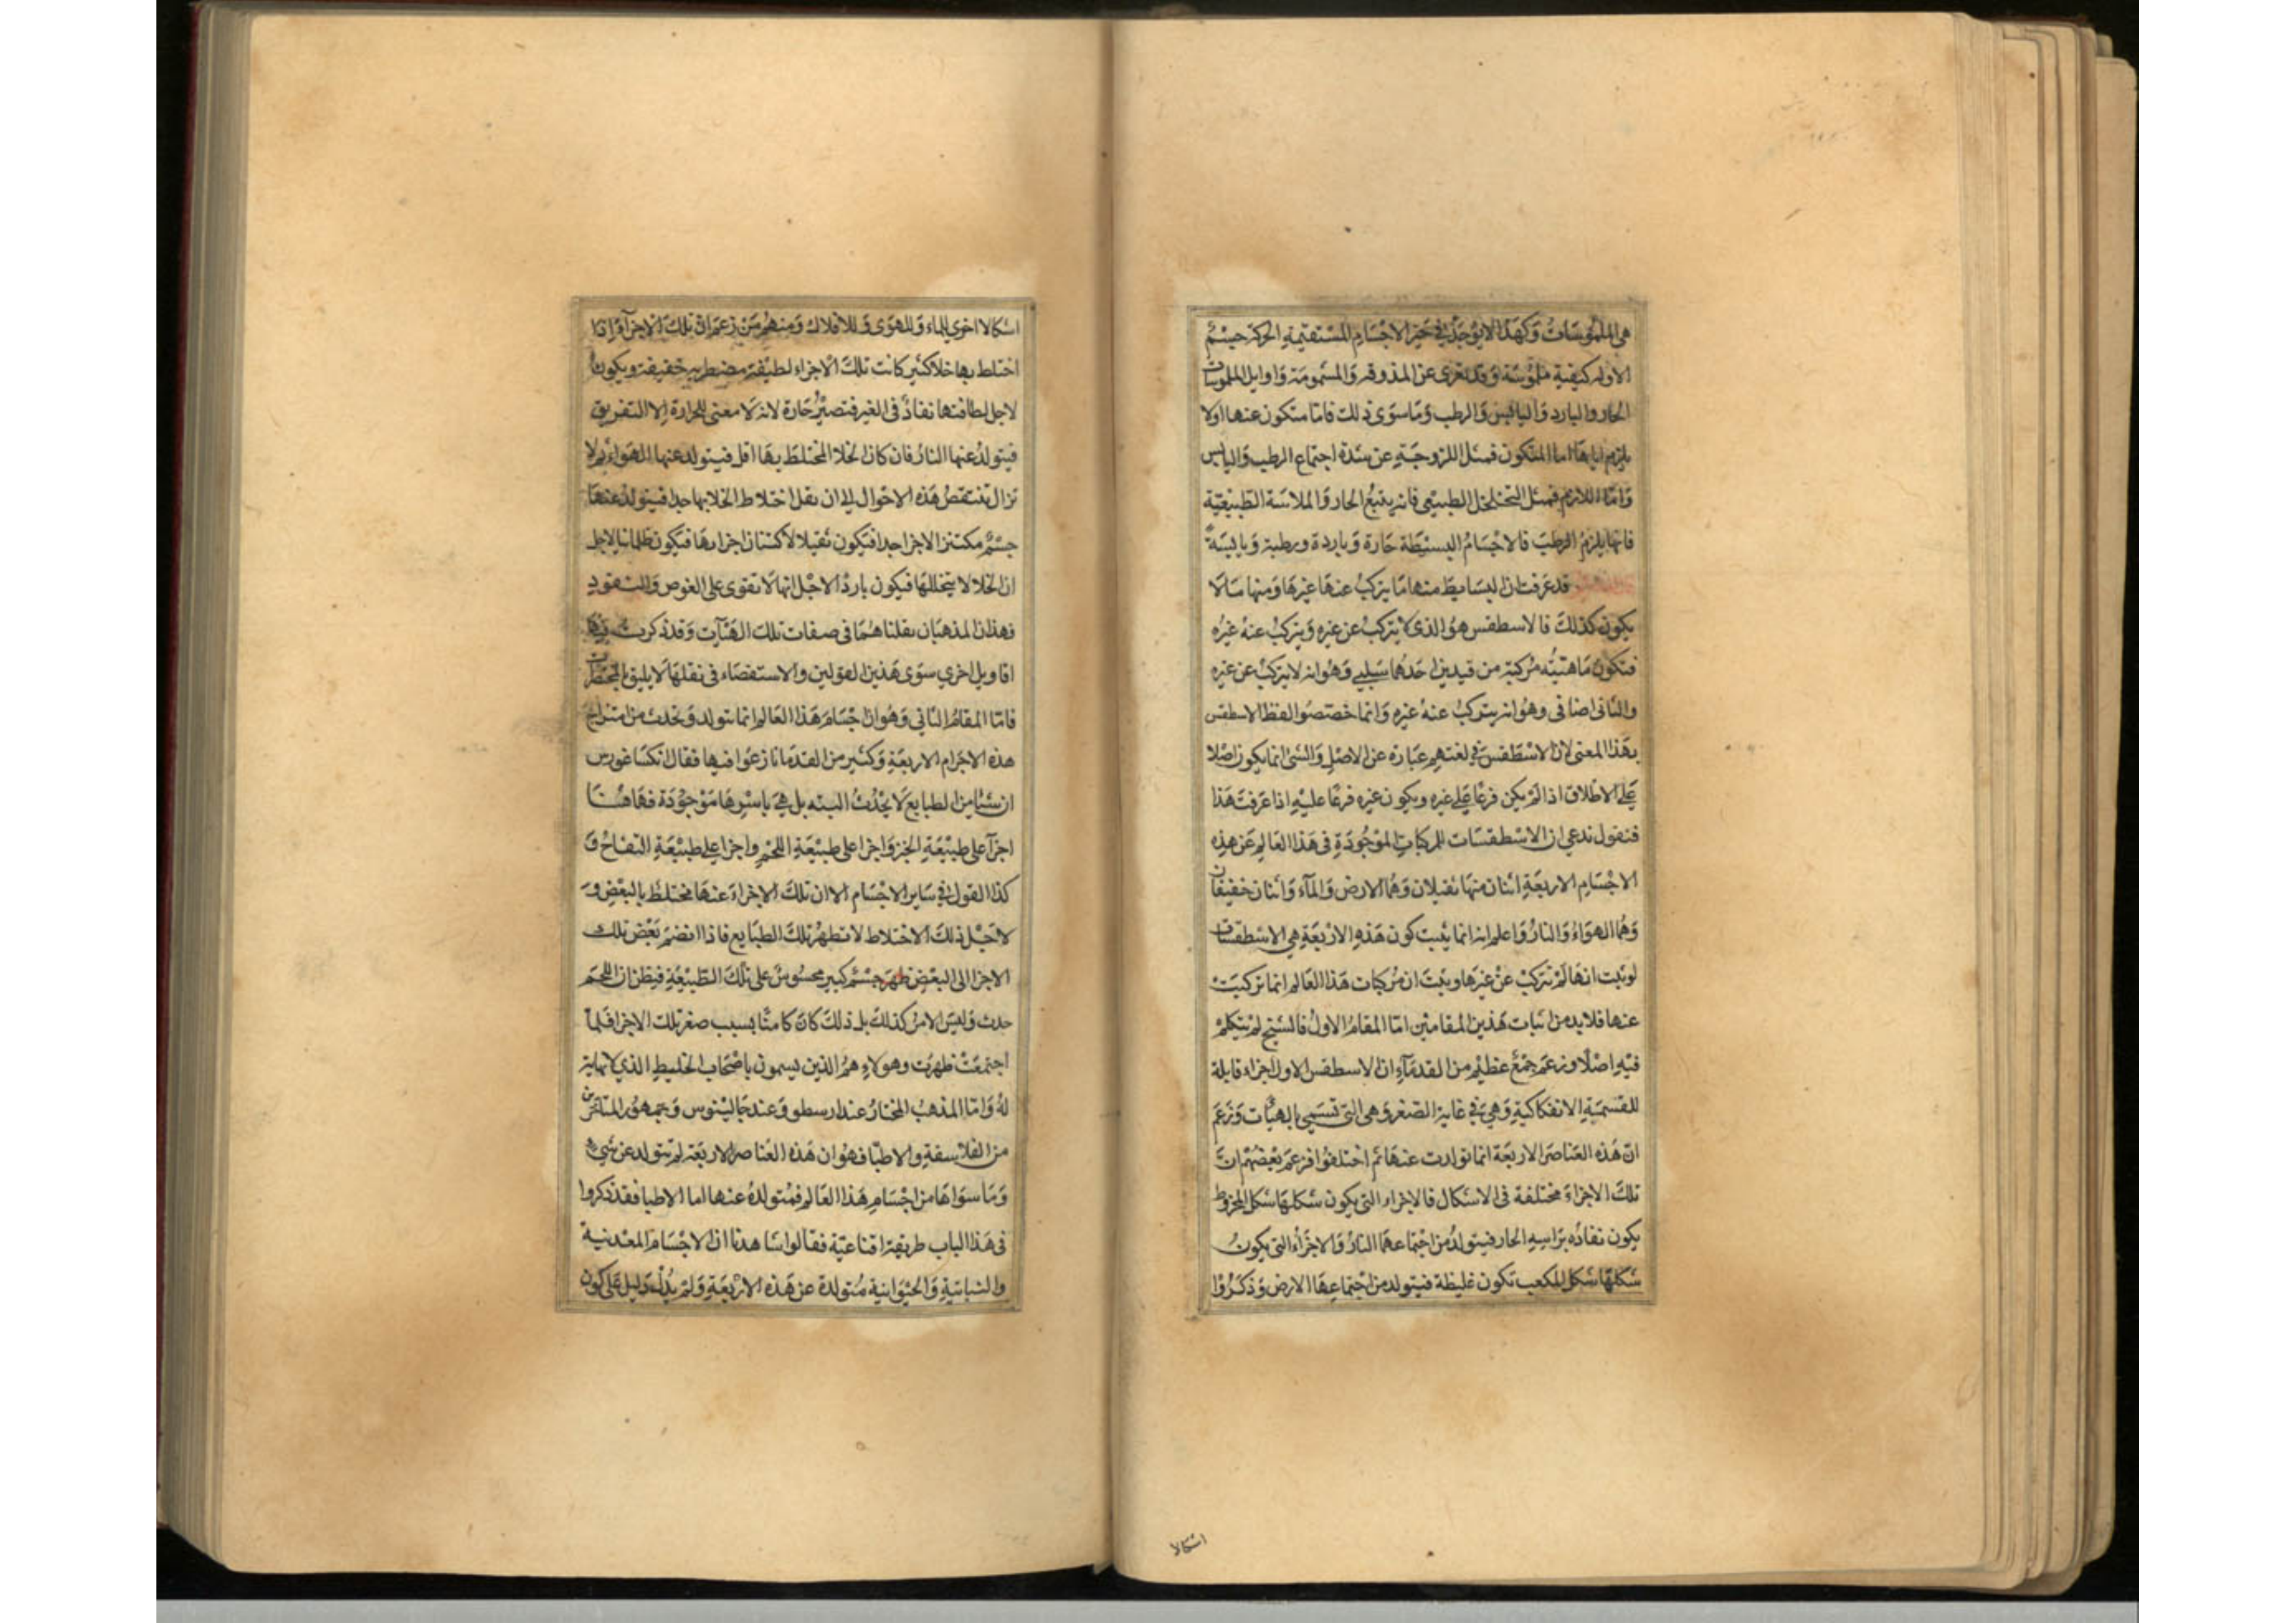 هي الملموسات وَكهَذا لايوجَد في حَيّز الاجْسَام المسْتقيمةِ الحركة جسْمٌ
الاوله كيفية ملموسَة وَقد تعرى عن المذوقه وَالمشمومَة وَاوايل الملموسات
الحار والبارد وَاليابس وَالرطب وَمَا سوَى ذلك فامّا متكون عنها اولا
يلزم اياهَا اما المتكون فمثل اللزوجَةِ عن شدة اجتماع الرطب وَاليابس
وَامّا اللازم فمثل التخلخل الطبيعي فانه يتبعُ الحار وَالملاسَة الطّبيعيّة
فانها يلزمُ الرطبَ فالاجْسَامُ البسيْطَة حَارة وَباردة ورطبة وَيابسَة
قد عَرفت ان البسَايطَ منها مَا يتركبُ عنهَا غيرهَا وَمنها مَا لا
يكون كذلكَ فالاسطقس هوَ الذى لا يتركبُ عن غيره وَيتركبُ عنهُ غيرُه
فتكون مَاهيتُه مركبَة من قيدين احَدهُما سَلبي وَهوَانه لا يتركبُ عن غيره
والثانى اضافى وهوَانه يتركبُ عنهُ غيره وَانما خصّصُوا لفظ الاسطقس
بهَذا المعنى لان الاسْطقسَ في لغتهم عبَارة عن الاصْلِ وَالشئ انما يكون اصْلا
عَلى الاطلاق اذا لَم يكن فرعًا عَلى غيره ويكون غيره فرعًا عليهِ اذا عَرفت هَذا
فنقول ندعي ان الاسْطقسَات للمركباتِ الموْجُودَةِ فى هَذا العَالم عَن هذِه
الاجْسَام الاربعَةِ اثنان منهَا ثقيلان وَهُما الارض وَالمآء وَاثنان خفيفان
وَهُما الهوَاءُ وَالنارُ وَاعلم انه انما يثبت كون هَذهِ الارْبعَةِ هي الاسْطقسات
لو ثبت انهَا لَم تتركبْ عنْ غيرَها وَيثبت ان مُركبات هَذا العَالم انما تركبت
عنها فلا بد من اثبات هَذين المقامَيْن امّا المقامُ الاولُ فالشيخ لم يتكلمْ
فيْهِ اصْلًا وزعَم جَمْعٌ عظيْم من القدمَآءِ ان الاسطقس الاول اجزاء قابلة
للقسمَةِ الانفكاكيةِ وَهي في غاية الصغر وَهى التي تسَمي بالهبآت وَزعَم
انّ هَذه العنَاصر الاربعَة انما تولدت عنهَا ثم اختلفوُا فزعَم بعْضهُمْ انّ
تلكَ الاجزاءَ مختلفة فى الاشكال فالاجزاء التي يكون شكلهَا شكل المخروط
يكون نفاذُه برَاسِه الحار فيتولدُ من اجْتماعهَا النارُ وَالاجزاءُ التي يكونُ
شكلهَا شكل المكعب تكون غليظة فيتولد من اجْتماعهَا الارض وَذكرُوْا
اشكالا
اشكالا اخرى للماء وَللهوَى وَللافلاك وَمنهُمْ مَنْ زعَم ان تلكَ الاجزآء اذا
اختلط بها خلا كثير كانت تلكَ الاجزاء لطيْفة مضطربه خفيفة ويكون
لاجل لطافتها نفاذٌ فى الغير فتصيْرُ حَارة لانه لَا معنى للحرارة الا التفريق
فيتولدُ عنها النارُ فان كان الخلا المختلطَ بهَا اقل فيتولد عنها الهوَاء ثم لا
تزال تنتقصُ هَذه الاحْوال الى ان يقل اختلاط الخلا بها جدا فيتولد عنهَا
جسْمٌ مكتنز الاجزا جدا فتكون ثقيلا لاكتناز اجزاءهَا فتكون ظلمانيا لاجل
ان الخلا لا يتخللهَا فيكون باردًا لاجْل انها لَا تقوى على الغوص وَالنفوذ
فهذان المذهبَان نقلناهُمَا فى صفات تلك الهبَآت وَقد ذكرت فيها
اقاويل اخرى سوَى هَذين القولين والاستقصَاء فى نقلهَا لَا يليق بالمختصرات
فامّا المقامُ الثاني وَهوَان اجْسَام هَذا العَالم انما تتولد وَتحدث من امتزاج
هذه الاجرَام الاربعَةِ وَكثير من القدمَا نازعَوا فيها فقال انكساغورس
ان شئا من الطبايع لَا يحْدُث البته بل هيَ باسْرِهَا مَوْجُوْدَة فهَاهنَا
اجزآ على طبيْعَةِ الخبز وَاجزا على طبيْعَةِ اللحْم واجزا على طبيْعَةِ التفاح وَ
كذا القول في سَاير الاجْسَام الا ان تلكَ الاجزاءَ عنهَا مختلط بالبعْض وَ
لاجْل ذلكَ الاختلاط لا تظهرُ تلكَ الطبَايع فاذا انضم بَعْض تلك
الاجزا الى البعْض ظهرَ جسْمٌ كبير محسُوسٌ على تلكَ الطّبيْعَةِ فيظن ان اللحم
حدث وَليسَ الامرُ كذلكَ بل ذلكَ كان كامنًا بسبب صغر تلك الاجزا فلما
اجتمعَتْ ظهرَت وهولاءِ همُ الذين يسمون باصْحَاب الخليط الذي لا نهاية
لهُ وَامّا المذهبُ المختارُ عند ارسطو وَعند جَاليْنوس وَجمهوُر المتاخرين
من الفلاسفةِ والاطبّا فهوَان هَذه العَناصر الاربعَة لم تتولد عن شئ
وَمَا سوَاهَا من اجْسَام هَذا العَالم فمُتولدة عنها اما الاطبا فقد ذكروا
فى هَذا الباب طريقة اقناعيّة فقالوا شاهدنا ان الاجْسَام المعْدنية
والنباتيّةِ وَالحيْوَانية مُتولدة عن هَذه الارْبَعَةِ وَلم يدُلّ دَليل عَلى كون